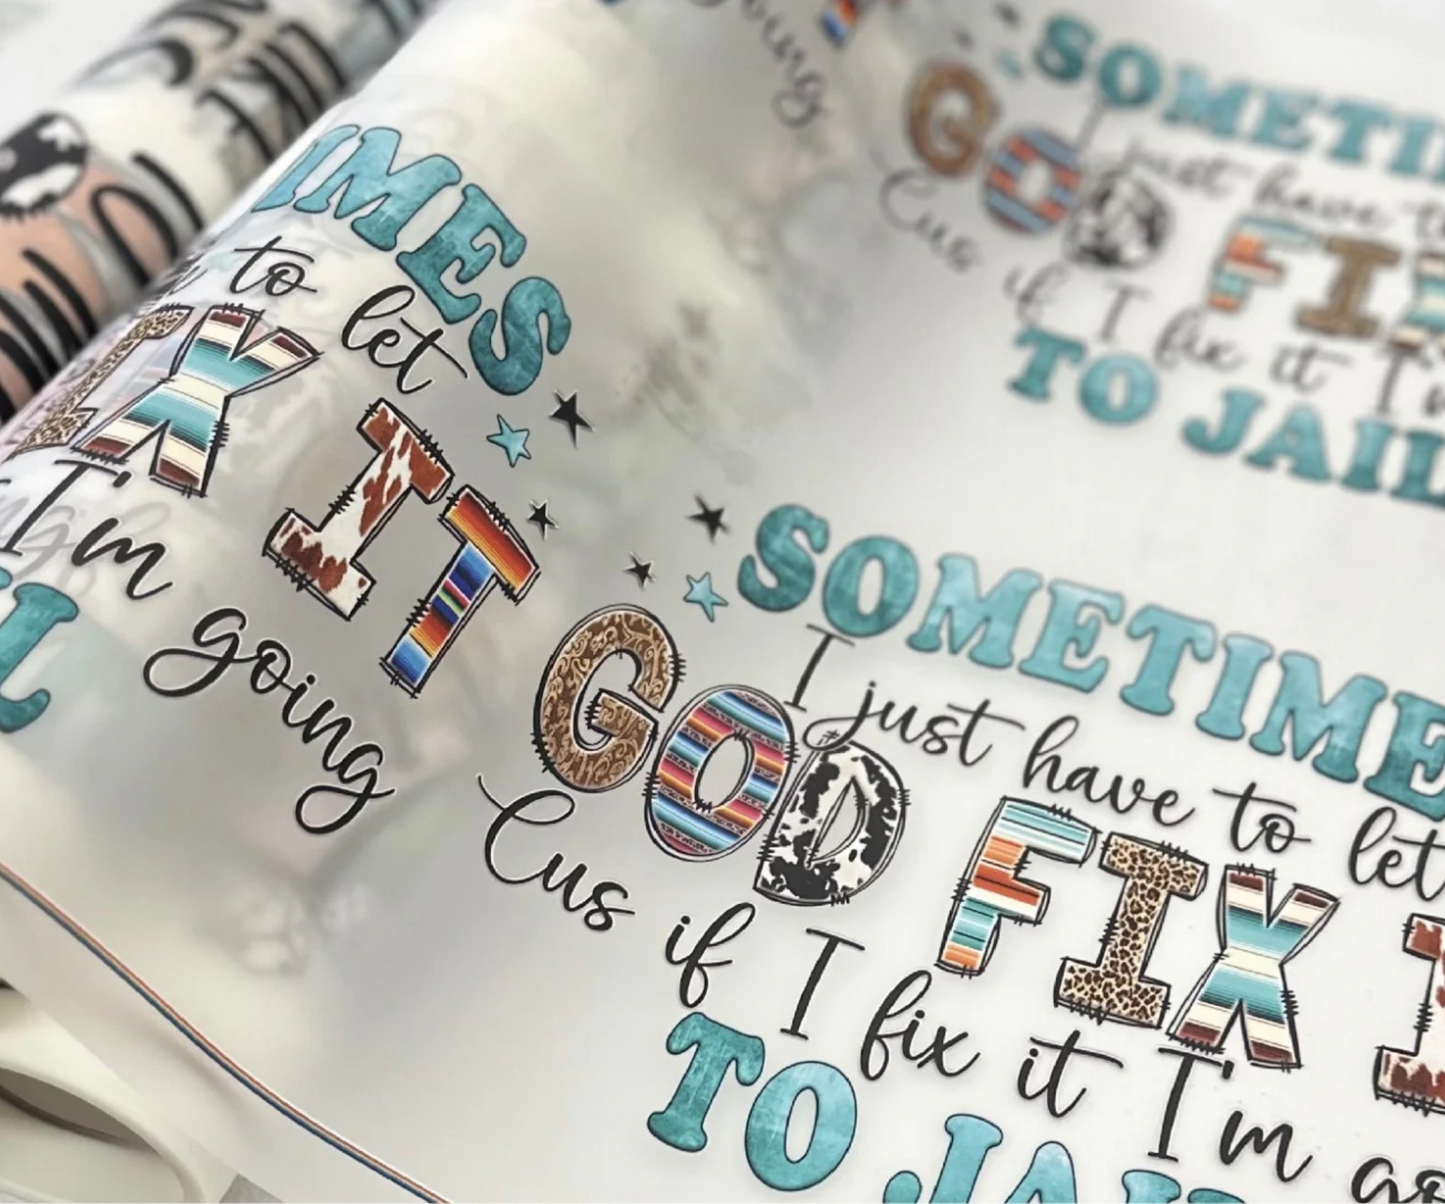 going
SOMETI
I just have t
GOD FIX
Cus if I fix it I'm
TO JAIL
IMES
to let
IX IT
I'm going
IL
SOMETIME
I just have to let
GOD FIX I
Cus if I fix it I'm go
TO JAI